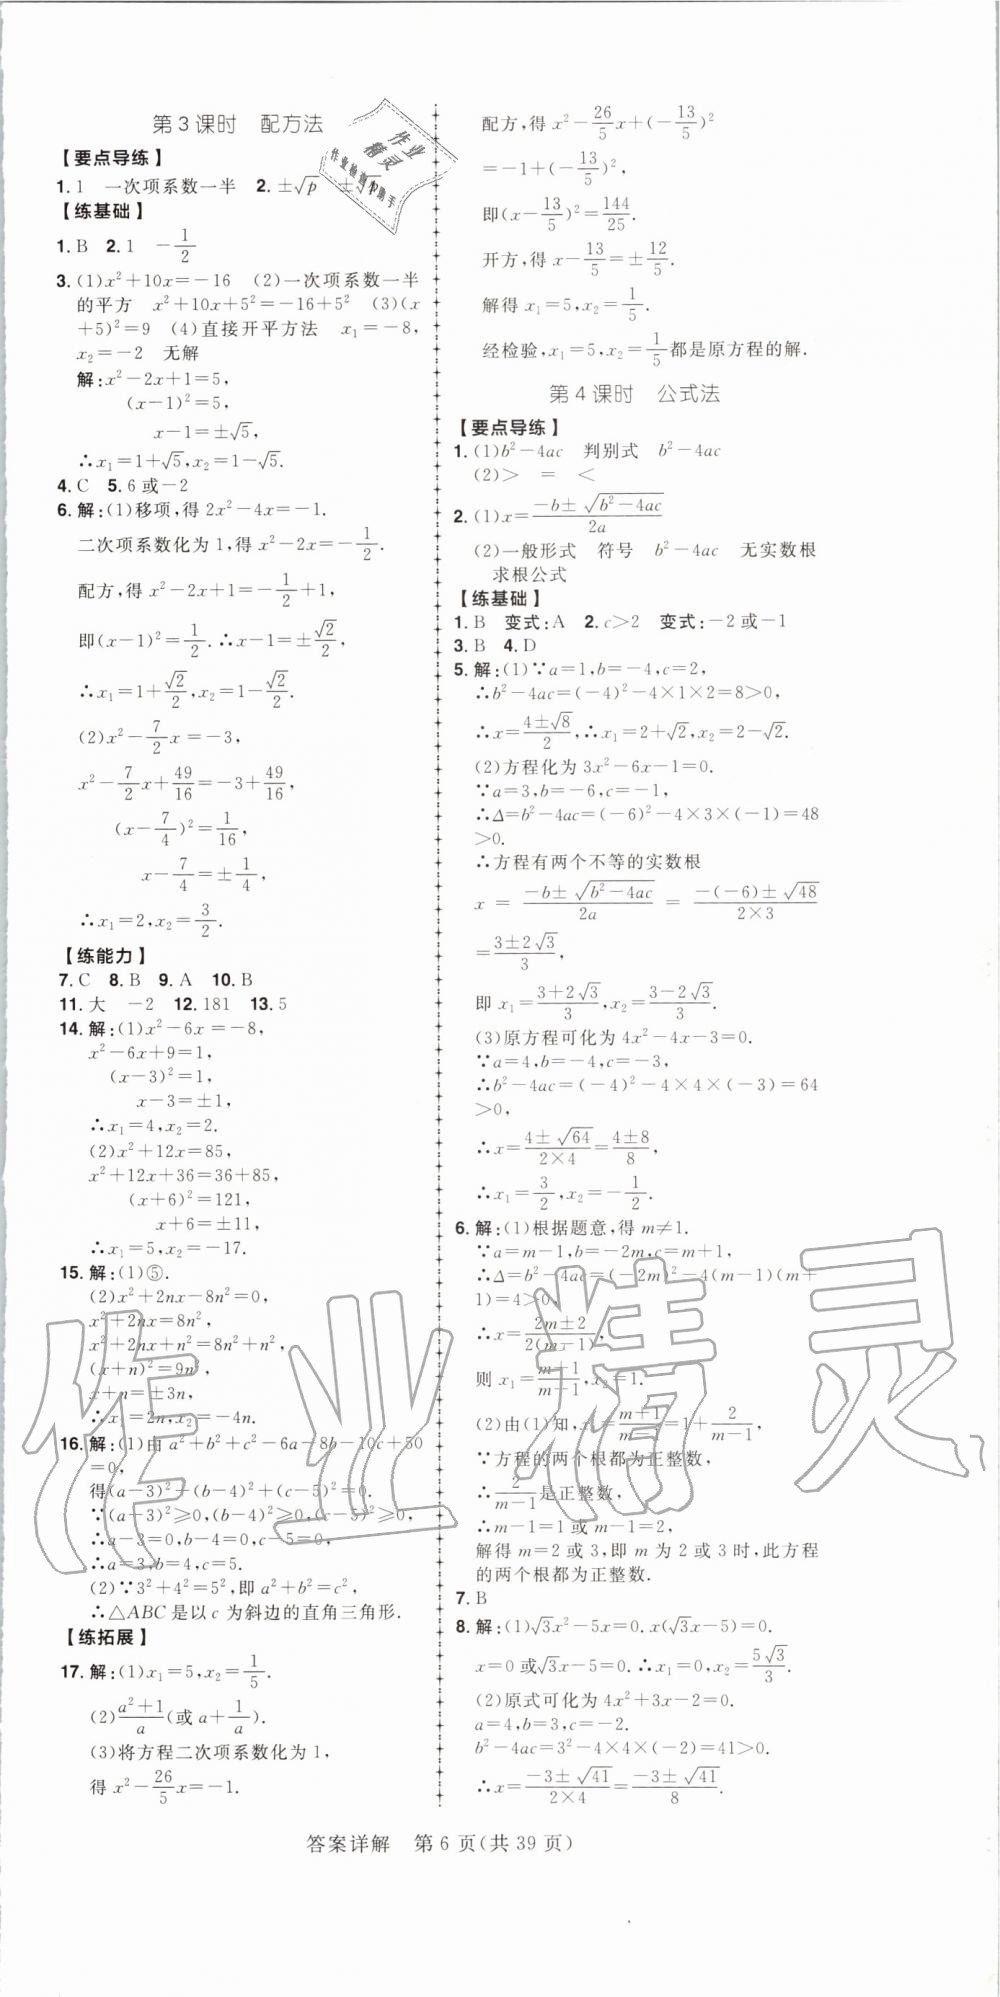 第3课时 配方法
【要点导练】
1. 1 一次项系数一半 2. ±√p ±√p
【练基础】
1. B 2. 1 -1/2
3. (1)x²+10x=-16 (2)一次项系数一半
的平方 x²+10x+5²=-16+5² (3)(x
+5)²=9 (4)直接开平方法 x₁=-8,
x₂=-2 无解
解:x²-2x+1=5,
(x-1)²=5,
x-1=±√5,
∴x₁=1+√5,x₂=1-√5.
4. C 5. 6或-2
6. 解:(1)移项,得2x²-4x=-1.
二次项系数化为1,得x²-2x=-1/2.
配方,得x²-2x+1=-1/2+1,
即(x-1)²=1/2.∴x-1=±√2/2,
∴x₁=1+√2/2,x₂=1-√2/2.
(2)x²-7/2x=-3,
x²-7/2x+49/16=-3+49/16
(x-7/4)²=1/16,
x-7/4=±1/4,
∴x₁=2,x₂=3/2.
【练能力】
7. C 8. B 9. A 10. B
11. 大 -2 12. 181 13. 5
14. 解:(1)x²-6x=-8,
x²-6x+9=1,
(x-3)²=1,
x-3=±1,
∴x₁=4,x₂=2.
(2)x²+12x=85,
x²+12x+36=36+85,
(x+6)²=121,
x+6=±11,
∴x₁=5,x₂=-17.
15. 解:(1)⑤.
(2)x²+2nx-8n²=0,
x²+2nx=8n²,
x²+2nx+n²=8n²+n²,
(x+n)²=9n²,
x+n=±3n,
∴x₁=2n,x₂=-4n.
16. 解:(1)由a²+b²+c²-6a-8b-10c+50
=0,
得(a-3)²+(b-4)²+(c-5)²=0.
∵(a-3)²≥0,(b-4)²≥0,(c-5)²≥0,
∴a-3=0,b-4=0,c-5=0.
∴a=3,b=4,c=5.
(2)∵3²+4²=5²,即a²+b²=c²,
∴△ABC是以c为斜边的直角三角形.
【练拓展】
17. 解:(1)x₁=5,x₂=1/5.
(2)(a²+1)/a(或a+1/a).
(3)将方程二次项系数化为1,
得x²-26/5x=-1.
配方,得x²-26/5x+(-13/5)²
=-1+(-13/5)²,
即(x-13/5)²=144/25.
开方,得x-13/5=±12/5.
解得x₁=5,x₂=1/5.
经检验,x₁=5,x₂=1/5都是原方程的解.
第4课时 公式法
【要点导练】
1. (1)b²-4ac 判别式 b²-4ac
(2)> = <
2. (1)x=(-b±√(b²-4ac))/2a
(2)一般形式 符号 b²-4ac 无实数根
求根公式
【练基础】
1. B 变式:A 2. c>2 变式:-2或-1
3. B 4. D
5. 解:(1)∵a=1,b=-4,c=2,
∴b²-4ac=(-4)²-4×1×2=8>0,
∴x=(4±√8)/2,∴x₁=2+√2,x₂=2-√2.
(2)方程化为3x²-6x-1=0.
∵a=3,b=-6,c=-1,
∴Δ=b²-4ac=(-6)²-4×3×(-1)=48
>0.
∴方程有两个不等的实数根
x=(-b±√(b²-4ac))/2a=(-(-6)±√48)/(2×3)
=(3±2√3)/3,
即x₁=(3+2√3)/3,x₂=(3-2√3)/3.
(3)原方程可化为4x²-4x-3=0.
∵a=4,b=-4,c=-3,
∴b²-4ac=(-4)²-4×4×(-3)=64
>0,
∴x=(4±√64)/(2×4)=(4±8)/8,
∴x₁=3/2,x₂=-1/2.
6. 解:(1)根据题意,得m≠1.
∵a=m-1,b=-2m,c=m+1,
∴Δ=b²-4ac=(-2m)²-4(m-1)(m+
1)=4>0,
∴x=(2m±2)/(2(m-1)),
则x₁=(m+1)/(m-1),x₂=1.
(2)由(1)知,x₁=(m+1)/(m-1)=1+2/(m-1),
∵方程的两个根都为正整数,
∴2/(m-1)是正整数,
∴m-1=1或m-1=2,
解得m=2或3,即m为2或3时,此方程
的两个根都为正整数.
7. B
8. 解:(1)√3x²-5x=0.x(√3x-5)=0.
x=0或√3x-5=0.∴x₁=0,x₂=5√3/3.
(2)原式可化为4x²+3x-2=0.
a=4,b=3,c=-2.
b²-4ac=3²-4×4×(-2)=41>0.
∴x=(-3±√41)/(2×4)=(-3±√41)/8.
答案详解 第6页(共39页)
作业
精灵
作业检测小助手
作业精灵